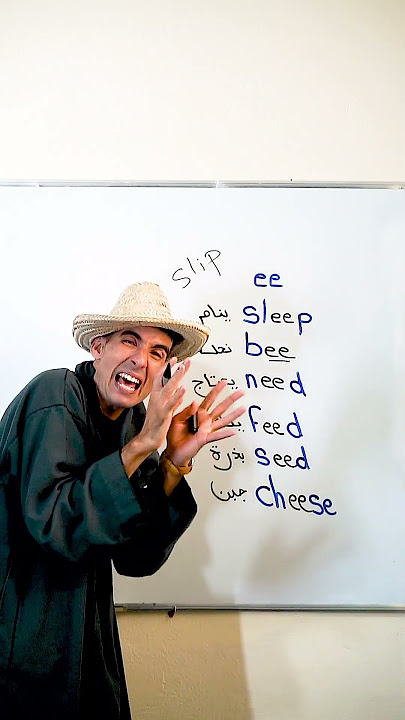 slip
ee
ينام sleep
bee
يحتاج need
feed
بذرة seed
جبن cheese